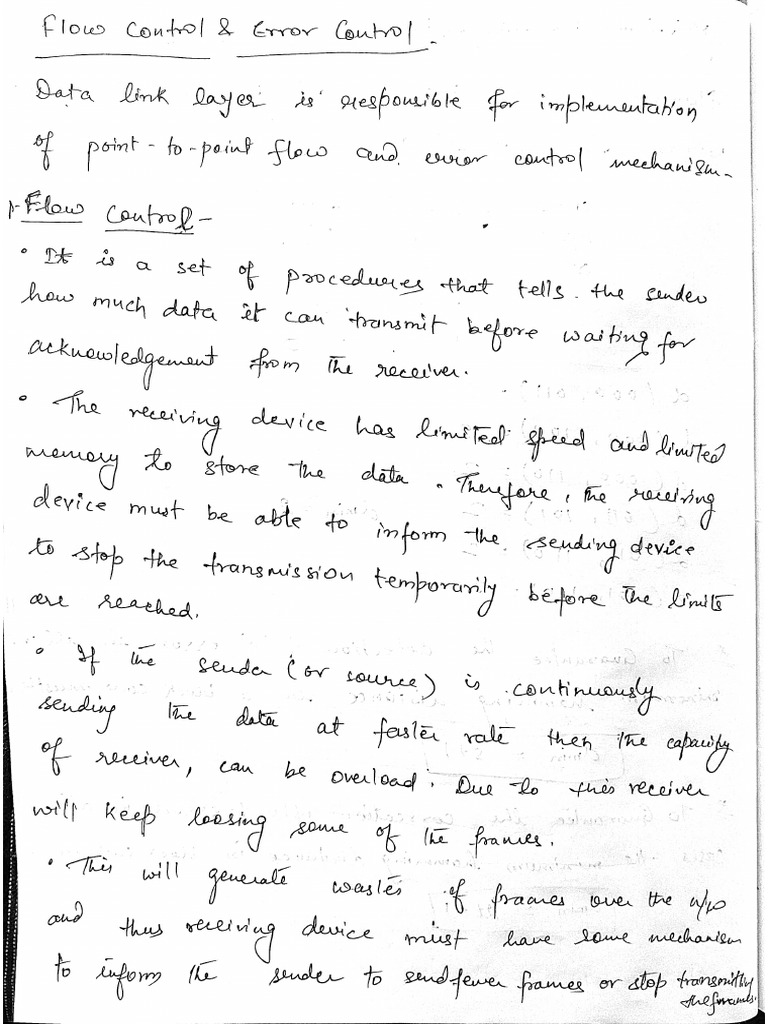 Flow Control & Error Control.
Data link layer is responsible for implementation
of point-to-point flow and error control mechanism.
Flow Control -
• It is a set of procedures that tells the sender
how much data it can transmit before waiting for
acknowledgement from the receiver.
• The receiving device has limited speed and limited
memory to store the data. Therefore, the receiving
device must be able to inform the sending device
to stop the transmission temporarily before the limits
are reached.
• If the sender (or source) is continuously
sending the data at faster rate then the capacity
of receiver, can be overload. Due to this receiver
will keep loosing some of the frames.
• This will generate wastes of frames over the n/w
and thus receiving device must have some mechanism
to inform the sender to send fewer frames or stop transmitting
the frames.